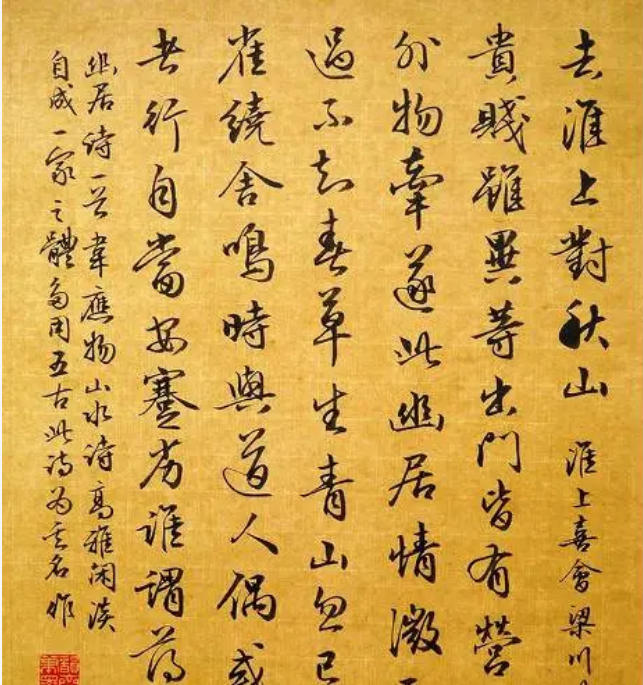 去淮上對秋山 淮上喜會梁川
貴賤雖異等出門皆有營
外物牽遂此幽居情微
過不知春草生青山忽已
雀繞舍鳴時與道人偶或
者行自當安蹇劣誰謂薄
幽居诗一首韋應物山水诗高雅闲淡
自成一家之體多用五古此诗为其名作